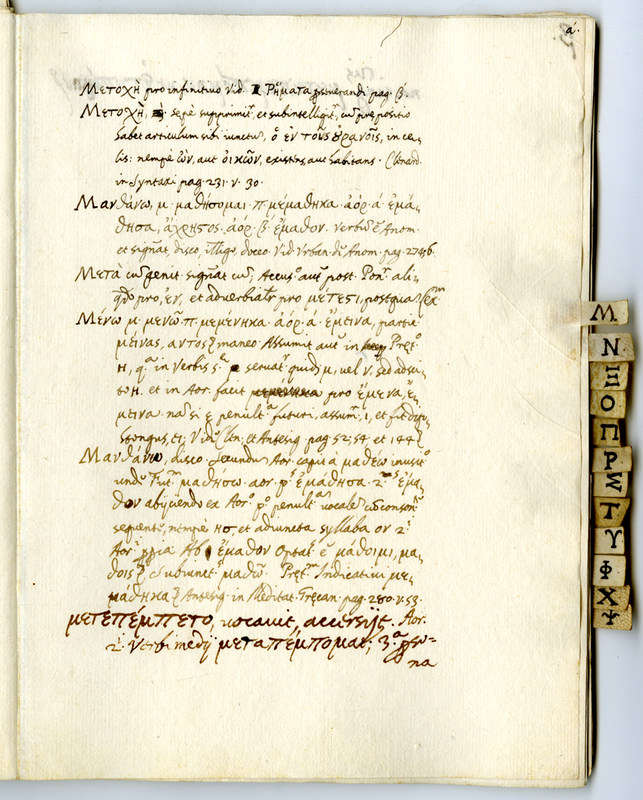 α΄.
ΜΕΤΟΧῊ pro infinitivo Vid. Ρήματα pag. β.
ΜΕΤΟΧῊ, sępè supprimit, et subintelligit, cu prępositio
habet articulum sibi iunctu, ὁ ἐν τοῖς οὐρανοῖς, in cę-
lis: nempè ὢν, aut οἰκῶν, existens, aut habitans. Clenard.
in Syntaxi pag. 231. v. 30.
Μανθάνω, μ. μαθήσομαι. π. μεμάθηκα. ἀόρ. ά. ἐμά-
θησα, ἄχρηστος. ἀόρ. β΄. ἔμαθον. Verbu ē Anom.
et signat, disco, doceo. Vid. Urban. de Anom. pag.
Μετὰ cu genit. signat cu, Accus. aut post. Pon. ali-
pro ἐν, et adverbialr pro μέτεστι, postqua
Μένω μ. μενῶ. π. μεμένηκα. ἀόρ. ά. ἔμεινα, partic.
μείνας, αντος maneo. Assumit aut in Pręt.
η, in Verbis servat μ, vel ν. sed
η. et in Aor. facit pro ἔμενα, ἔ-
μεινα. na si ε penult. futuri, assum. ι, et fit dip-
htongus, ει. Vid. Clen. et Antesig. pag. 52. 54. et 144.
Μανθάνω, disco. Secundu Aor. capit à μαθέω inusit.
unde Fut. μαθήσω. aor. p. ἐμάθησα. 2. ἔμα-
θον abijciendo ex Aor. p. penult. vocale cu conson.
sequente, nempè ησ, et adiuncta syllaba ον 2.
Aor. Ab ἔμαθον Optat. ē μάθοιμι, μά-
θοις Subiunct. μάθω. Pręt. Indicativi με-
μάθηκα Antesig. in Meditat. Gręcan. pag. 280. v. 53.
μετεπέμπετο, vocavit, accersijt. Aor.
2. Verbi medij μεταπέμπομαι, 3.ª perso-
na
Μ
Ν
Ξ
Ο
Π
Ρ
Σ
Τ
Υ
Φ
Χ
Ψ